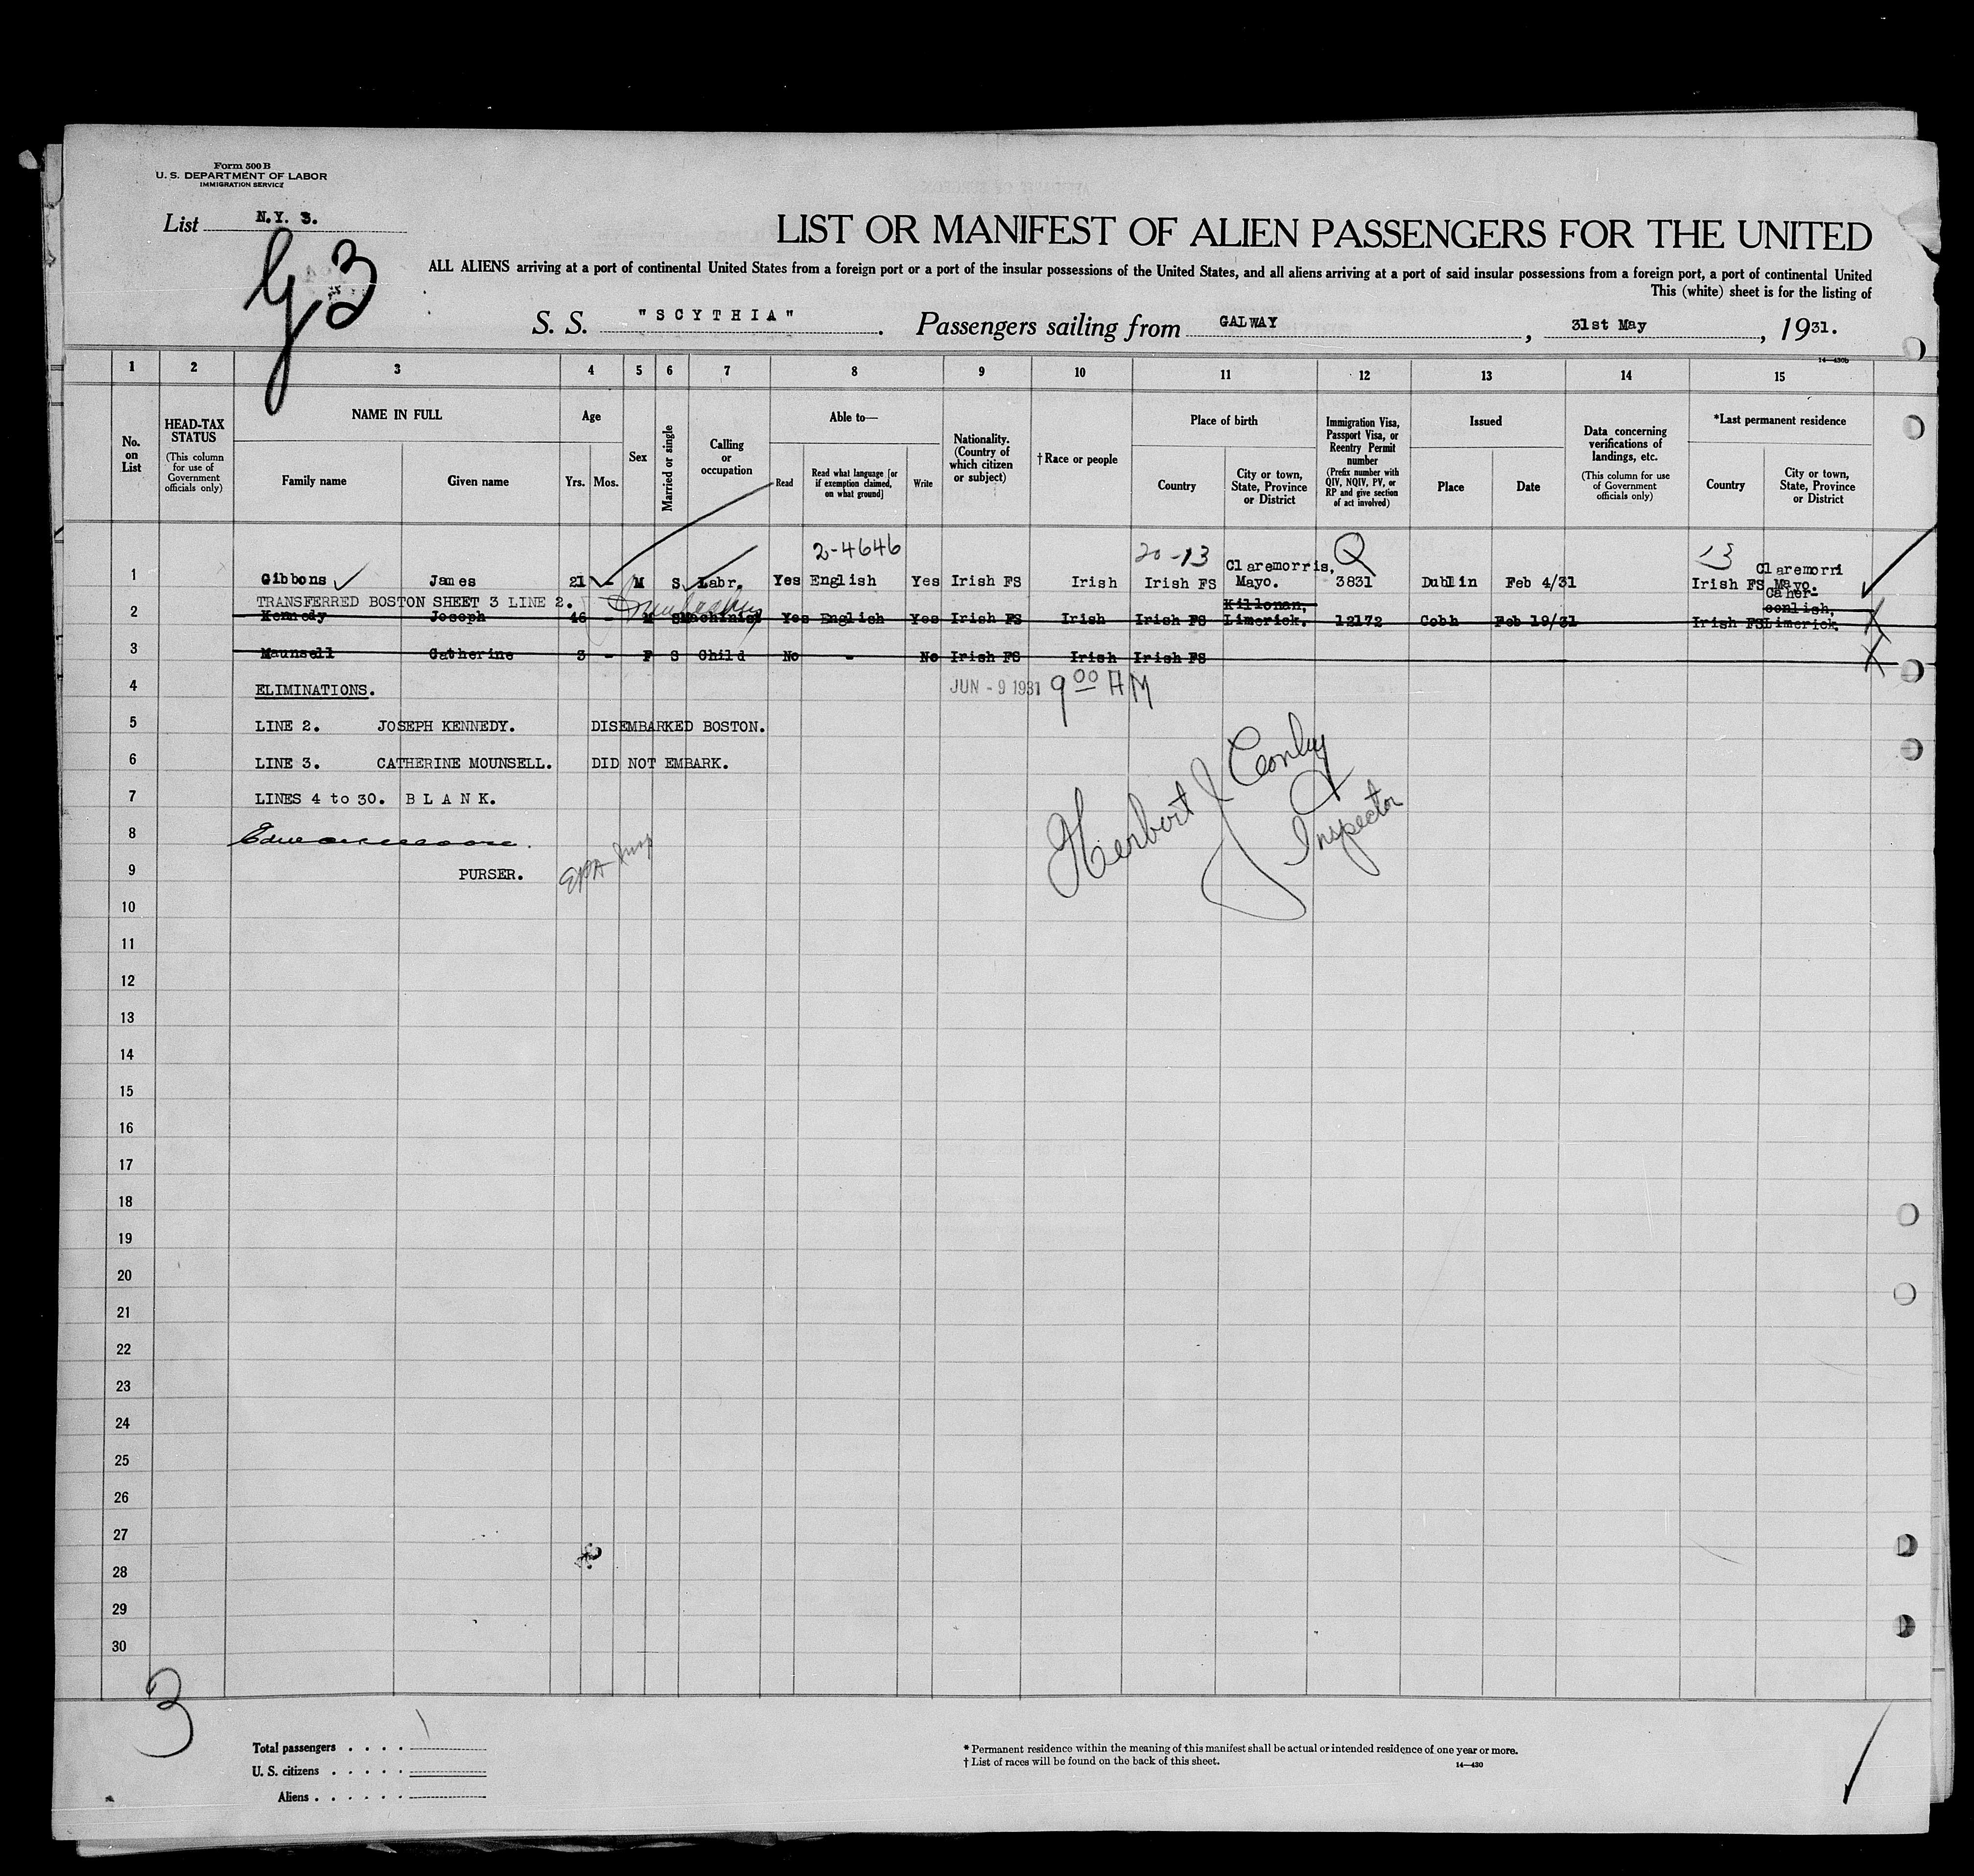 Form 500 B
U. S. DEPARTMENT OF LABOR
IMMIGRATION SERVICE
List N.Y. 3.
G3
LIST OR MANIFEST OF ALIEN PASSENGERS FOR THE UNITED
ALL ALIENS arriving at a port of continental United States from a foreign port or a port of the insular possessions of the United States, and all aliens arriving at a port of said insular possessions from a foreign port, a port of continental United
This (white) sheet is for the listing of
S. S. "SCYTHIA". Passengers sailing from GALWAY, 31st May, 1931.
14—430b
1 2 3 4 5 6 7 8 9 10 11 12 13 14 15
No. on List
HEAD-TAX STATUS (This column for use of Government officials only)
NAME IN FULL
Family name Given name
Age
Yrs. Mos.
Sex
Married or single
Calling or occupation
Able to—
Read
Read what language [or if exemption claimed, on what ground]
Write
Nationality. (Country of which citizen or subject)
†Race or people
Place of birth
Country
City or town, State, Province or District
Immigration Visa, Passport Visa, or Reentry Permit number (Prefix number with QIV, NQIV, PV, or RP and give section of act involved)
Issued
Place Date
Data concerning verifications of landings, etc. (This column for use of Government officials only)
*Last permanent residence
Country
City or town, State, Province or District
2-4646 20-13 Q 13
Claremorris, Claremorri
1 Gibbons James 21 - M S Labr. Yes English Yes Irish FS Irish Irish FS Mayo. 3831 Dublin Feb 4/31 Irish FS Mayo.
TRANSFERRED BOSTON SHEET 3 LINE 2.
Killonan, Caher-
conlish,
2 Kennedy Joseph 46 - M S Machinist Yes English Yes Irish FS Irish Irish FS Limerick. 12172 Cobh Feb 19/31 Irish FS Limerick.
3 Maunsell Catherine 3 - F S Child No - No Irish FS Irish Irish FS
4 ELIMINATIONS. JUN - 9 1931 9 00 AM
5 LINE 2. JOSEPH KENNEDY. DISEMBARKED BOSTON.
6 LINE 3. CATHERINE MOUNSELL. DID NOT EMBARK.
7 LINES 4 to 30. BLANK.
Herbert J Conley
Inspector
8
9 PURSER.
10
11
12
13
14
15
16
17
18
19
20
21
22
23
24
25
26
27
28
29
30
3
Total passengers . . . .
U. S. citizens . . . . .
Aliens . . . . . .
* Permanent residence within the meaning of this manifest shall be actual or intended residence of one year or more.
† List of races will be found on the back of this sheet.
14—430